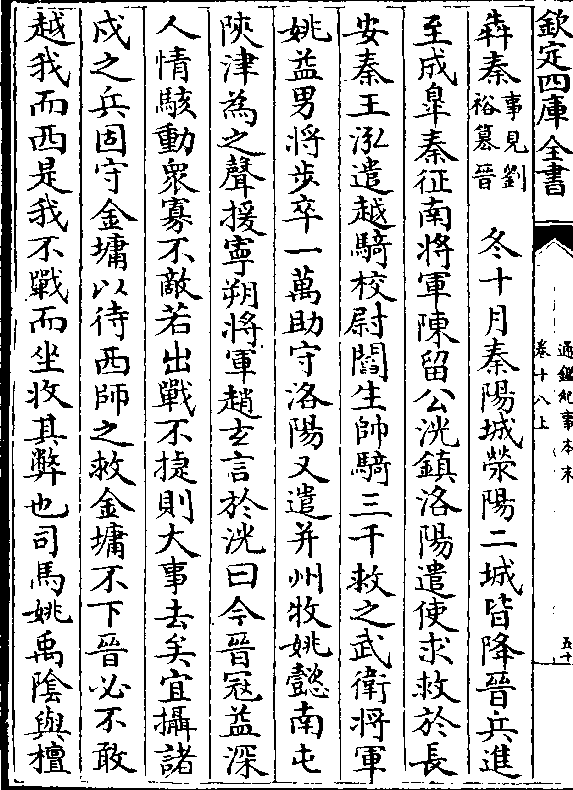 欽定四庫全書
通鑑紀事本末
卷十八上
五十
犇秦事見劉裕篡晉　冬十月秦陽城滎陽二城皆降晉兵進
至成臯秦征南將軍陳留公洸鎮洛陽遣使求救於長
安秦王泓遣越騎校尉閻生帥騎三千救之武衛將軍
姚益男將步卒一萬助守洛陽又遣并州牧姚懿南屯
陜津為之聲援寧朔將軍趙玄言於洸曰今晉冦益深
人情駭動衆寡不敵若出戰不捷則大事去矣宜攝諸
戍之兵固守金墉以待西師之救金墉不下晉必不敢
越我而西是我不戰而坐收其弊也司馬姚禹陰與檀